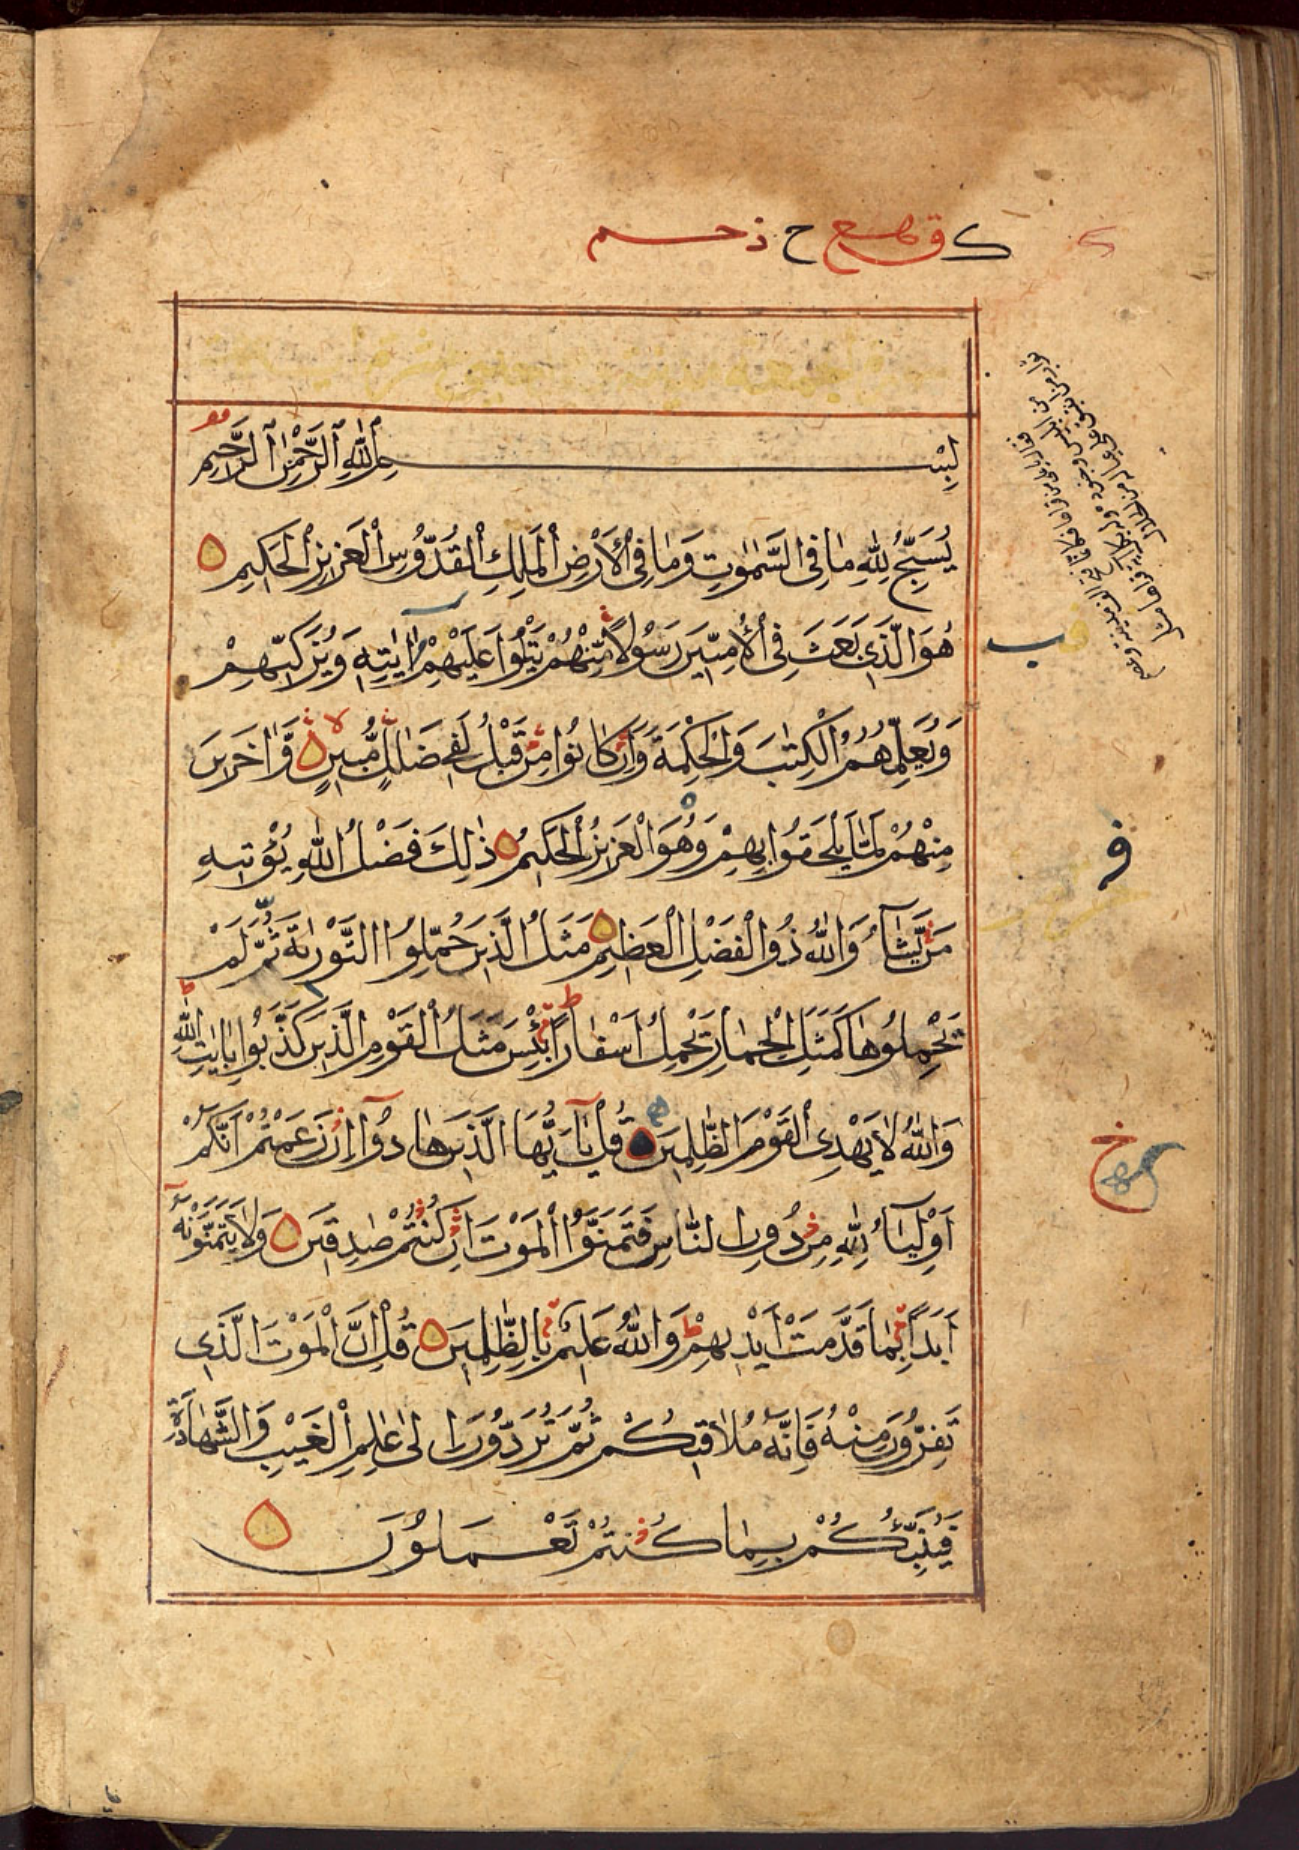 ك ق ﻬﻊ ح ذحم
سورة الجمعة
بِسْمِ ٱللّٰهِ ٱلرَّحْمٰنِ ٱلرَّحِيمِ
يُسَبِّحُ لِلّٰهِ مَا فِى السَّمٰوٰتِ وَمَا فِى ٱلْأَرْضِ ٱلْمَلِكِ ٱلْقُدُّوسِ ٱلْعَزِيزِ ٱلْحَكِيمِ
هُوَ الَّذِى بَعَثَ فِى ٱلْأُمِّيِّينَ رَسُولًا مِّنْهُمْ يَتْلُوا عَلَيْهِمْ اٰيٰتِهِ وَيُزَكِّيهِمْ
وَيُعَلِّمُهُمُ الْكِتٰبَ وَالْحِكْمَةَ وَاِنْ كَانُوا مِنْ قَبْلُ لَفِى ضَلٰلٍ مُّبِينٍ وَّاٰخَرِينَ
مِنْهُمْ لَمَّا يَلْحَقُوا بِهِمْ وَهُوَ الْعَزِيزُ الْحَكِيمُ ذٰلِكَ فَضْلُ اللّٰهِ يُؤْتِيهِ
مَنْ يَّشَآءُ وَاللّٰهُ ذُو الْفَضْلِ الْعَظِيمِ مَثَلُ الَّذِينَ حُمِّلُوا التَّوْرٰىةَ ثُمَّ لَمْ
يَحْمِلُوهَا كَمَثَلِ الْحِمَارِ يَحْمِلُ اَسْفَارًا بِئْسَ مَثَلُ الْقَوْمِ الَّذِينَ كَذَّبُوا بِاٰيٰتِ اللّٰهِ
وَاللّٰهُ لَا يَهْدِى الْقَوْمَ الظّٰلِمِينَ قُلْ يٰٓاَيُّهَا الَّذِينَ هَادُوٓا اِنْ زَعَمْتُمْ اَنَّكُمْ
اَوْلِيَآءُ لِلّٰهِ مِنْ دُونِ النَّاسِ فَتَمَنَّوُا الْمَوْتَ اِنْ كُنْتُمْ صٰدِقِينَ وَلَا يَتَمَنَّوْنَهُٓ
اَبَدًا بِمَا قَدَّمَتْ اَيْدِيهِمْ وَاللّٰهُ عَلِيمٌ بِالظّٰلِمِينَ قُلْ اِنَّ الْمَوْتَ الَّذِى
تَفِرُّونَ مِنْهُ فَاِنَّهُ مُلَاقِيكُمْ ثُمَّ تُرَدُّونَ اِلٰى عٰلِمِ الْغَيْبِ وَالشَّهَادَةِ
فَيُنَبِّئُكُمْ بِمَا كُنْتُمْ تَعْمَلُونَ
قب
فه
خ